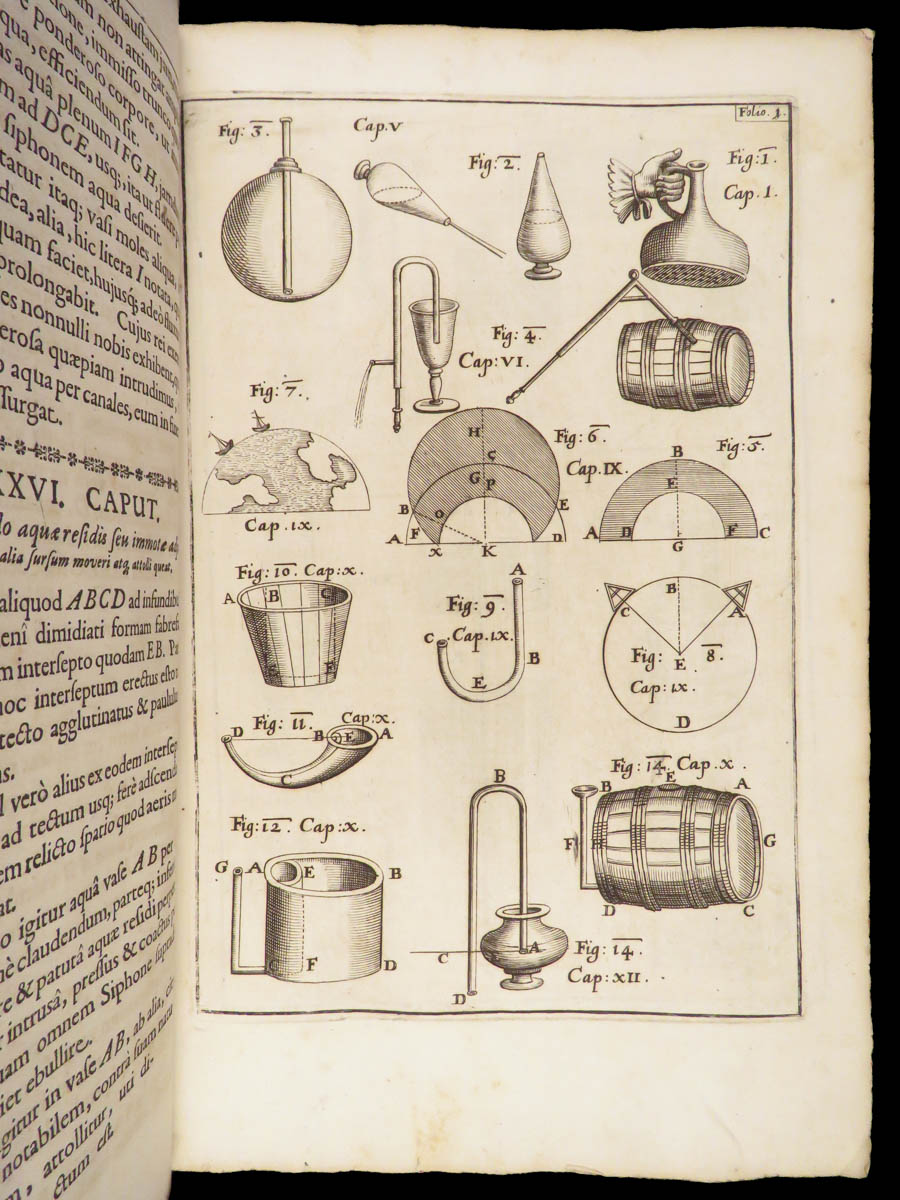 m non attingat
tione, immisso trunco
e ponderoso corpore, ut
qua, efficiendum sit.
as aquâ plenum IFGH, jam
m ad DCE, usq;, ita ut si
siphonem aqua desierit
tatur itaq; vasi moles aliqua,
dea, alia, hic litera I notata,
quam faciet, hujusq; adeò
prolongabit. Cujus rei
es nonnulli nobis exhibent,
erosa quæpiam intrudimus,
o aqua per canales, eum in
surgat.
XXVI. CAPUT.
do aquæ residis seu immotæ
alia sursum moveri atq; attolli queat.
aliquod ABCD ad infundibu
enî dimidiati formam fabrefa
m intersepto quodam EB.
hoc interseptum erectus esto
tecto agglutinatus & paulul
as.
l verò alius ex eodem intersep
ad tectum usq; ferè adscenda
em relicto spatio quod aeris
at.
o igitur aquâ vase AB per
nè claudendum, parteq; in
re & paturâ aquæ residi
r intrusâ, pressus & coactus
uam omnem Siphone
iet ebullire.
igitur in vase AB, ab alia,
notabilem, contrà suam natu
m, attollitur, uti di-
ctum est.
Folio. 1.
Fig: 3.
Cap. V
Fig: 2.
Fig: 1.
Cap. 1.
Fig: 4.
Cap: VI.
Fig: 7.
Cap. IX.
H
C
G P
B
O
E
A F
X
K
D
Fig: 6.
Cap. IX.
Fig: 5.
B
E
A D
G
F C
Fig: 10. Cap: X.
A B C
E F
Fig: 9.
Cap. IX.
A
C
B
E
C B A
Fig: 8.
E
Cap: IX.
D
Fig: 11. Cap: X.
D B E A
C
Fig: 12. Cap: X.
G A E B
F D
B
A
C
D
Fig: 14. Cap X.
B E A
F G
D C
Fig: 14.
Cap: XII.